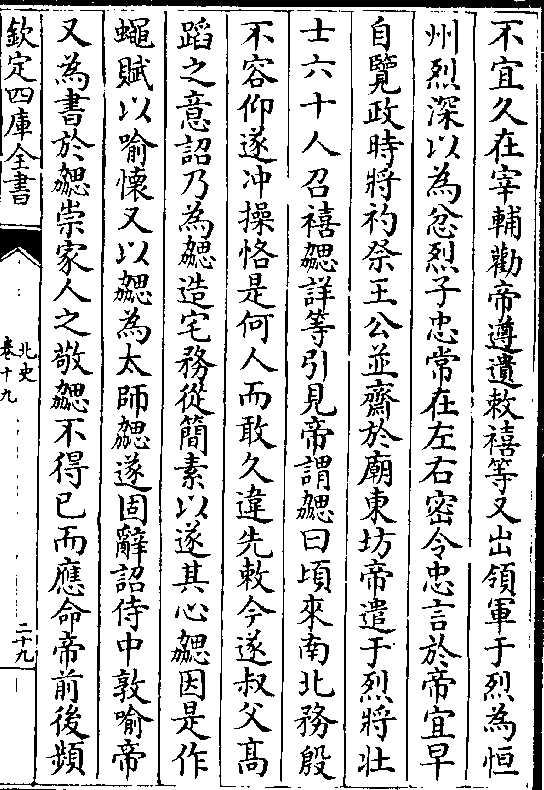 不宜久在宰輔勸帝遵遺敕禧等又出領軍于烈為恒
州烈深以為忿烈子忠常在左右密令忠言於帝宜早
自覽政時將礿祭王公並齋於廟東坊帝遣于烈將壯
士六十人召禧勰詳等引見帝謂勰曰頃來南北務殷
不容仰遂沖操恪是何人而敢久違先敕今遂叔父髙
蹈之意詔乃為勰造宅務從簡素以遂其心勰因是作
蠅賦以喻懷又以勰為太師勰遂固辭詔侍中敦喻帝
又為書於勰崇家人之敬勰不得已而應命帝前後頻
欽定四庫全書
北史
卷十九
二十九